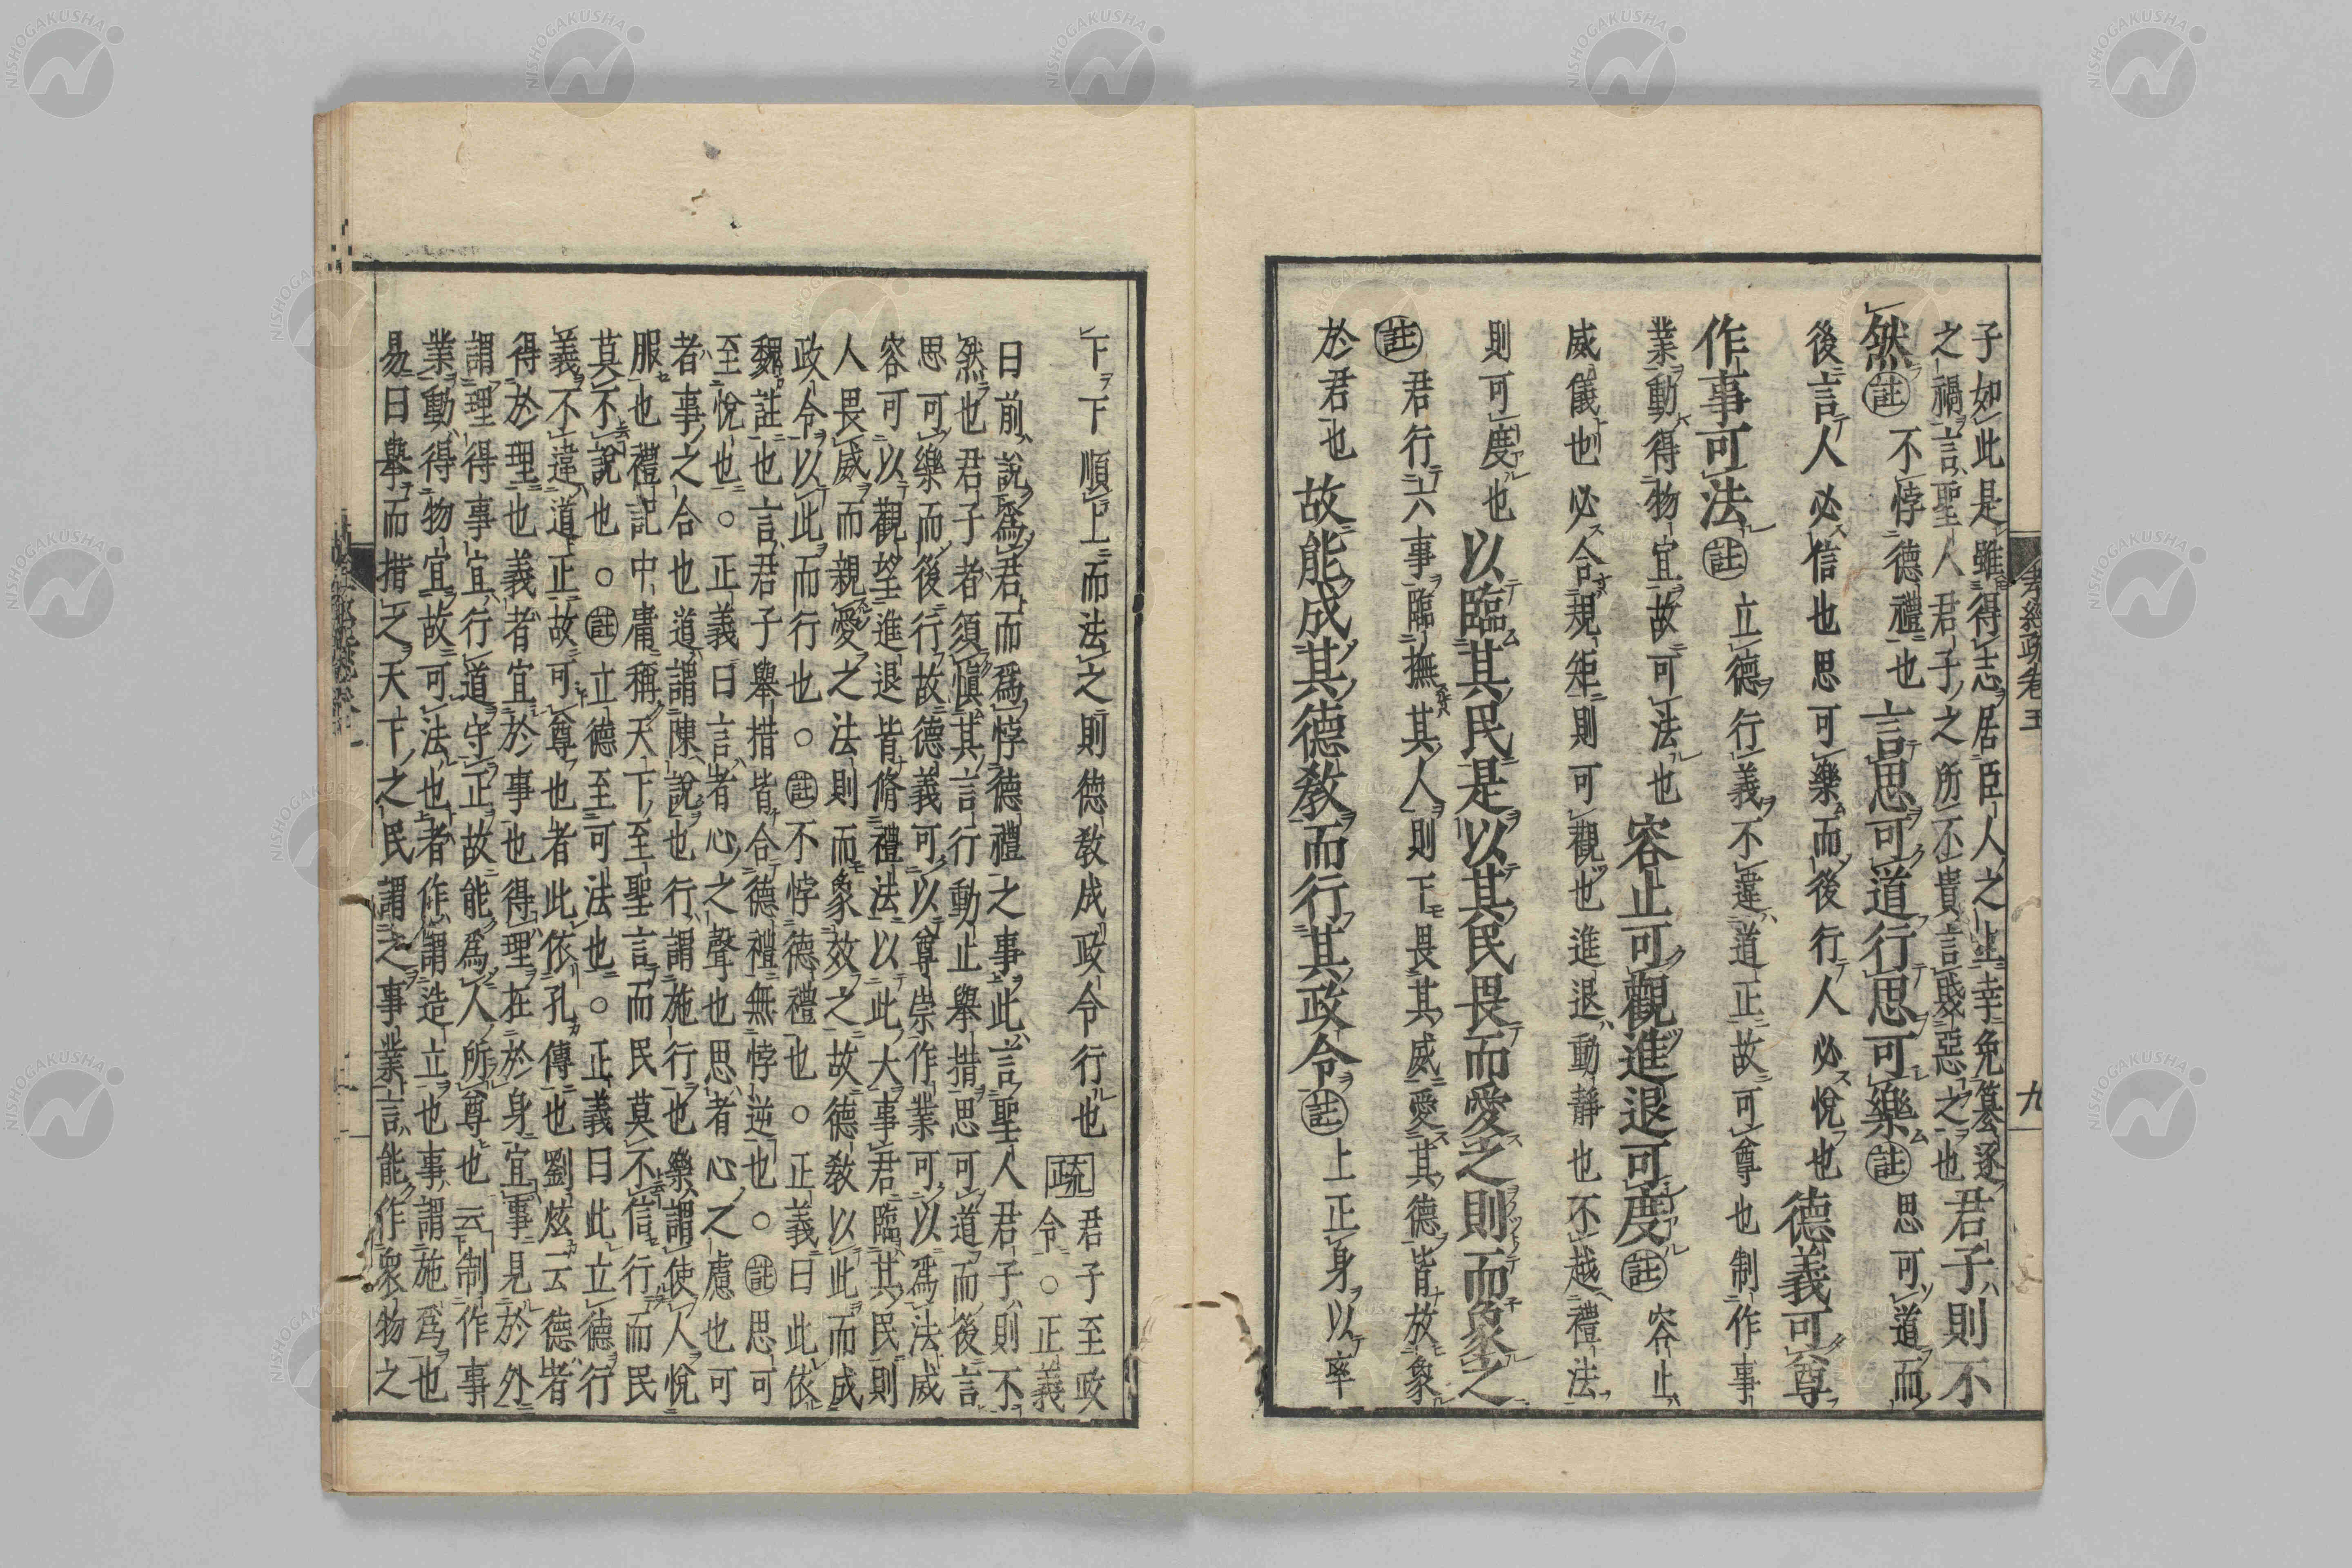 孝經疏卷五 九
子如此是雖得志居臣人之上幸免篡逐
之禍言聖人君子之所不貴言賤惡之也
君子則不
然註不悖德禮也言思可道行思可樂註思可道而
後言人必信也思可樂而後行人必悅也德義可尊
作事可法註立德行義不違道正故可尊也制作事
業動得物宜故可法也容止可觀進退可度註容止
威儀也必合規矩則可觀也進退動靜也不越禮法
則可度也以臨其民是以其民畏而愛之則而象之
註君行六事臨撫其人則下畏其威愛其德皆放象
於君也故能成其德教而行其政令註上正身以率
下下順上而法之則德教成政令行也疏君子至政
令○正義
曰前說爲君而爲悖德禮之事此言聖人君子則不
然也君子者須愼其言行動止舉措思可道而後言
思可樂而後行故德義可以尊崇作業可以爲法威
容可以觀望進退皆脩禮法以此大事君臨其民則
人畏威而親愛之法則而象效之故德教以此而成
政令以此而行也○註不悖德禮也○正義曰此依
魏註也言君子舉措皆合德禮無悖逆也○註思可
至悅也○正義曰言者心之聲也思者心之慮也可
者事之合也道謂陳說也行謂施行也樂謂使人悅
服也禮記中庸稱天下至聖言而民莫不信行而民
莫不說也○註立德至可法也○正義曰此立德行
義不違道正故可尊也者此依孔傳也劉炫云德者
得於理也義者宜於事也得理在於身宜事見於外
謂理得事宜行道守正故能爲人所尊也云制作事
業動得物宜故可法也者作謂造立也事謂施爲也
易曰舉而措之天下之民謂之事業言能作衆物之
NISHOGAKUSHA